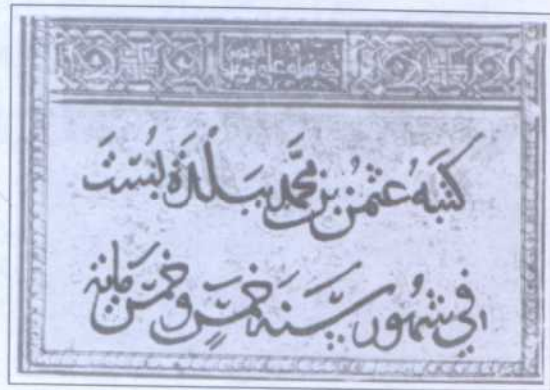 كتبه عثمن بن محمد ببلدة بُست
في شهور سنة خمس وخمس مائة